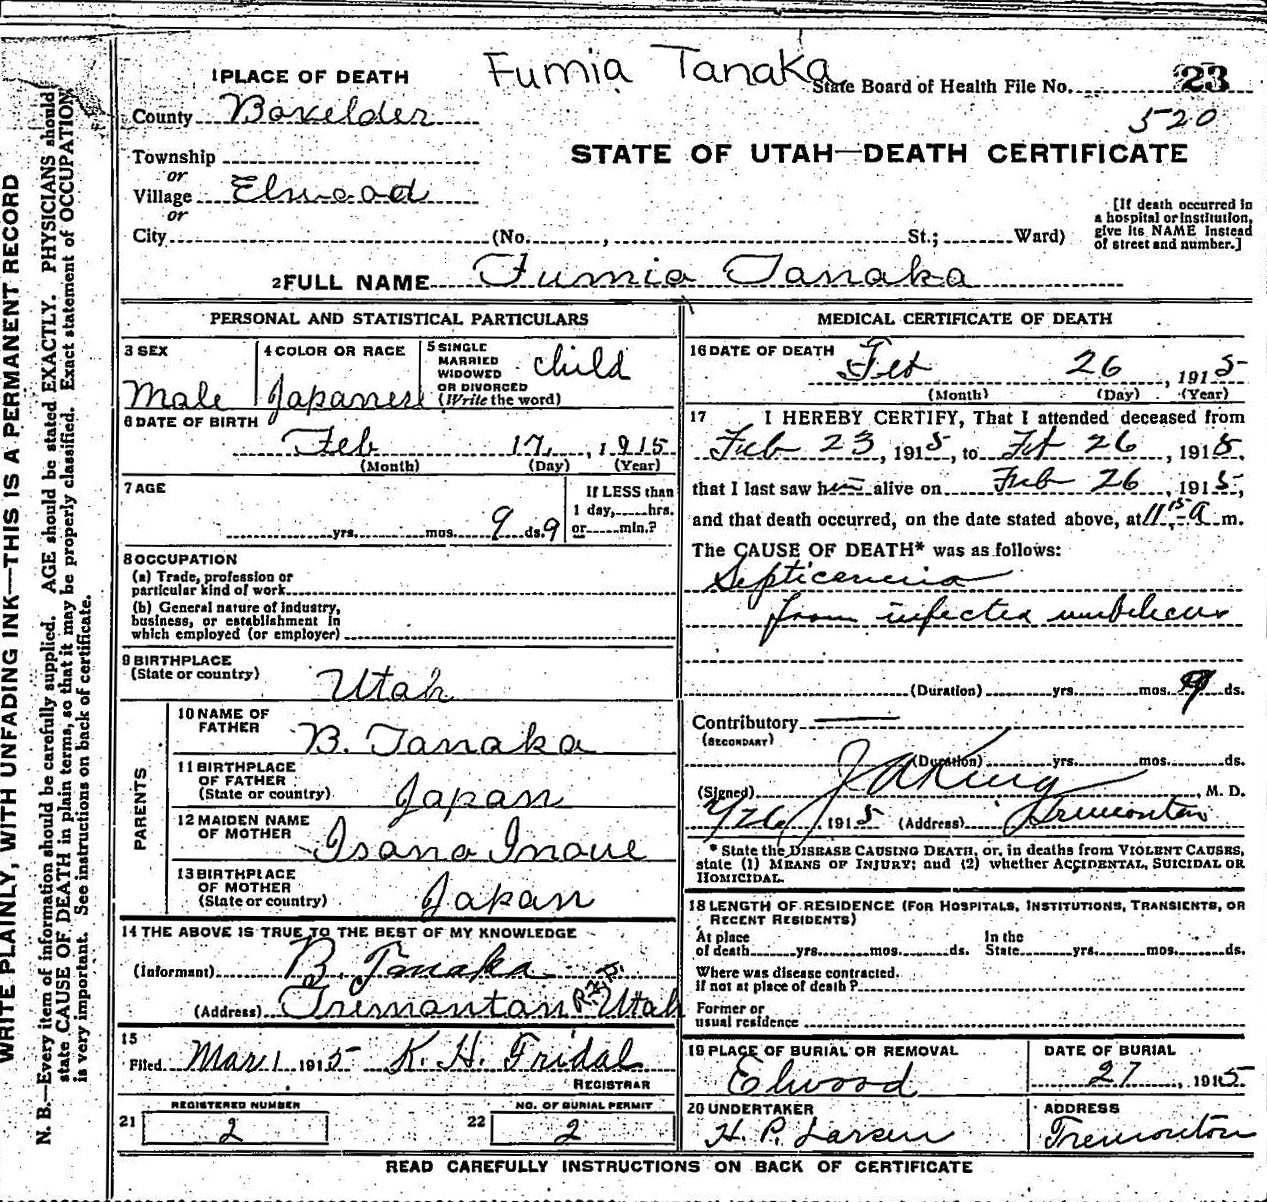 WRITE PLAINLY, WITH UNFADING INK—THIS IS A PERMANENT RECORD
N. B.—Every item of information should be carefully supplied. AGE should be stated EXACTLY. PHYSICIANS should
state CAUSE OF DEATH in plain terms, so that it may be properly classified. Exact statement of OCCUPATION
is very important. See instructions on back of certificate.
Fumia Tanaka
1 PLACE OF DEATH
State Board of Health File No. 23
520
County Boxelder
STATE OF UTAH—DEATH CERTIFICATE
Township
or
Village Elwood
or
City (No. , St.; Ward)
[If death occurred in
a hospital or institution,
give its NAME instead
of street and number.]
2 FULL NAME Fumia Tanaka
PERSONAL AND STATISTICAL PARTICULARS
3 SEX
Male
4 COLOR OR RACE
Japanese
5 SINGLE
MARRIED
WIDOWED
OR DIVORCED
(Write the word)
child
6 DATE OF BIRTH
Feb 17, 1915
(Month) (Day) (Year)
7 AGE
yrs. mos. 9 ds. 9
If LESS than
1 day, hrs.
or min.?
8 OCCUPATION
(a) Trade, profession or
particular kind of work
(b) General nature of industry,
business, or establishment in
which employed (or employer)
9 BIRTHPLACE
(State or country)
Utah
PARENTS
10 NAME OF
FATHER
B. Tanaka
11 BIRTHPLACE
OF FATHER
(State or country)
Japan
12 MAIDEN NAME
OF MOTHER
Isano Inoue
13 BIRTHPLACE
OF MOTHER
(State or country)
Japan
14 THE ABOVE IS TRUE TO THE BEST OF MY KNOWLEDGE
(Informant) B. Tanaka
(Address) Tremontan Utah
15
Filed Mar 1 1915 K. H. Fridal
REGISTRAR
21
REGISTERED NUMBER
2
22
NO. OF BURIAL PERMIT
2
MEDICAL CERTIFICATE OF DEATH
16 DATE OF DEATH
Feb 26, 1915
(Month) (Day) (Year)
17 I HEREBY CERTIFY, That I attended deceased from
Feb 23, 1915, to Feb 26, 1915,
that I last saw him alive on Feb 26, 1915,
and that death occurred, on the date stated above, at 11 15 a m.
The CAUSE OF DEATH* was as follows:
Septicemia
from infected umbilicus
(Duration) yrs. mos. 9 ds.
Contributory
(SECONDARY)
(Duration) yrs. mos. ds.
(Signed) J A King, M. D.
2/26, 1915 (Address) Tremonton
* State the DISEASE CAUSING DEATH, or, in deaths from VIOLENT CAUSES,
state (1) MEANS OF INJURY; and (2) whether ACCIDENTAL, SUICIDAL OR
HOMICIDAL.
18 LENGTH OF RESIDENCE (FOR HOSPITALS, INSTITUTIONS, TRANSIENTS, OR
RECENT RESIDENTS)
At place
of death yrs. mos. ds.
In the
State yrs. mos. ds.
Where was disease contracted.
if not at place of death?
Former or
usual residence
19 PLACE OF BURIAL OR REMOVAL
Elwood
DATE OF BURIAL
27, 1915
20 UNDERTAKER
H. P. Larsen
ADDRESS
Tremonton
READ CAREFULLY INSTRUCTIONS ON BACK OF CERTIFICATE